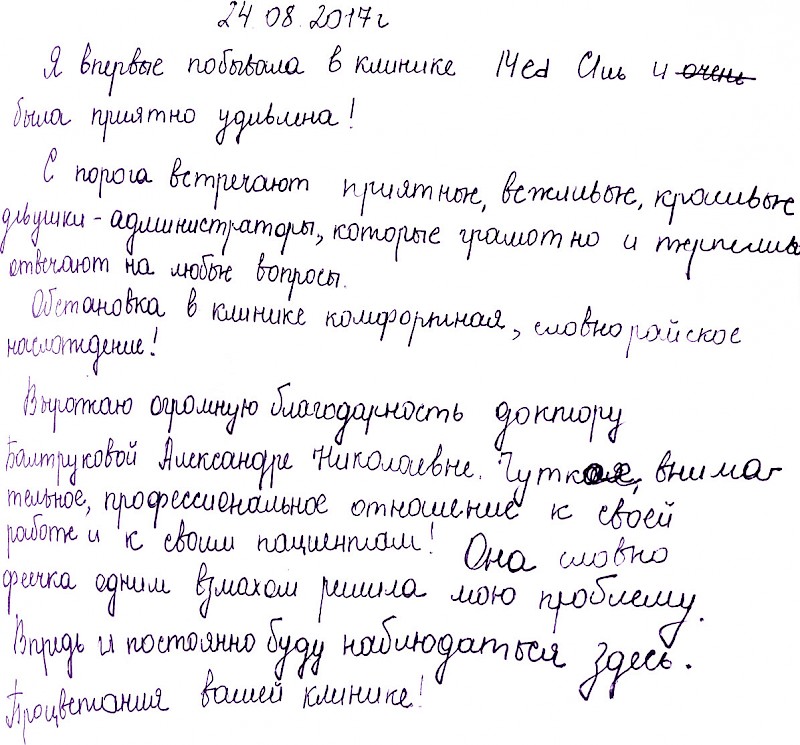 24.08.2017г
Я впервые побывала в клинике MedClub и очень
была приятно удивлена!
С порога встречают приятные, вежливые, красивые
девушки-администраторы, которые грамотно и терпелив
отвечают на любые вопросы.
Обстановка в клинике комфортная, словно райское
наслаждение!
Выражаю огромную благодарность доктору
Балтруковой Александре Николаевне. Чуткое, внима-
тельное, профессиональное отношение к своей
работе и к своим пациентам! Она словно
феечка одним взмахом решила мою проблему.
Впредь и постоянно буду наблюдаться здесь.
Процветания вашей клинике!